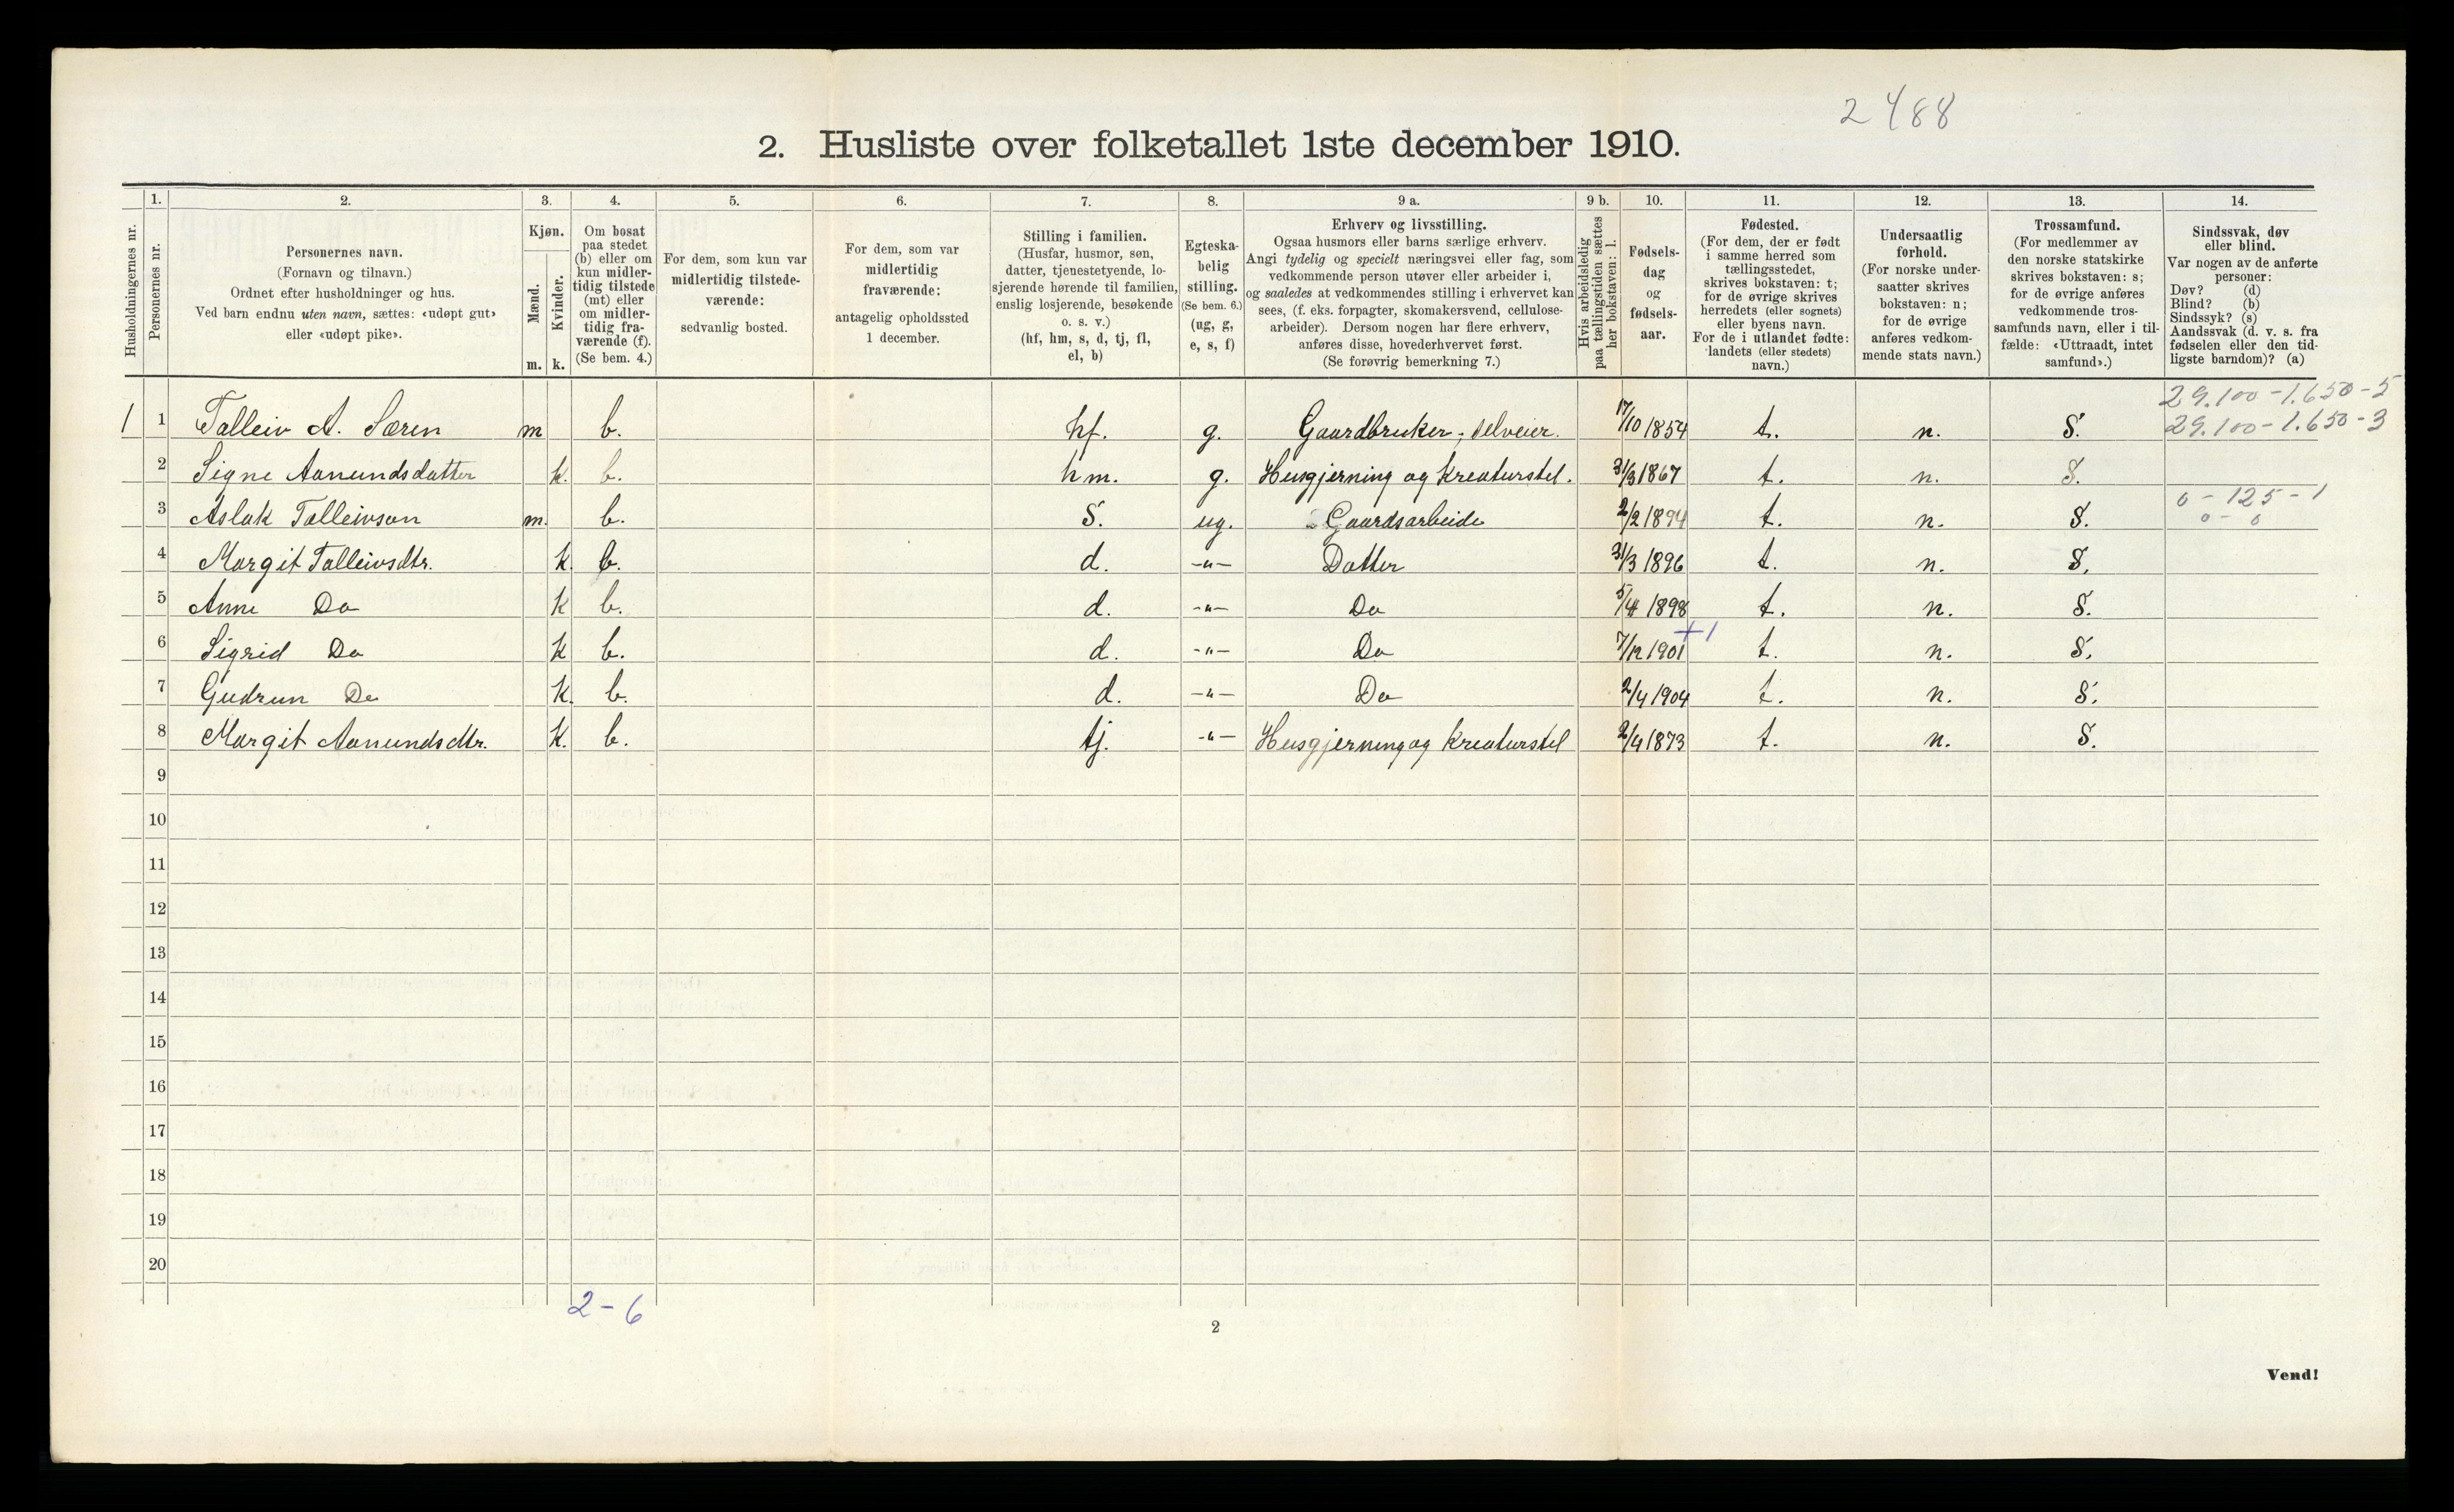 2488
2. Husliste over folketallet 1ste december 1910.
Husholdningernes nr.
1. Personernes nr.
2. Personernes navn.
(Fornavn og tilnavn.)
Ordnet efter husholdninger og hus.
Ved barn endnu uten navn, sættes: «udøpt gut»
eller «udøpt pike».
3. Kjøn.
Mænd. m.
Kvinder. k.
4. Om bosat
paa stedet
(b) eller om
kun midler-
tidig tilstede
(mt) eller
om midler-
tidig fra-
værende (f).
(Se bem. 4.)
5. For dem, som kun var
midlertidig tilstede-
værende:
sedvanlig bosted.
6. For dem, som var
midlertidig
fraværende:
antagelig opholdssted
1 december.
7. Stilling i familien.
(Husfar, husmor, søn,
datter, tjenestetyende, lo-
sjerende hørende til familien,
enslig losjerende, besøkende
o. s. v.)
(hf, hm, s, d, tj, fl,
el, b)
8. Egteska-
belig
stilling.
(Se bem. 6.)
(ug, g,
e, s, f)
9 a. Erhverv og livsstilling.
Ogsaa husmors eller barns særlige erhverv.
Angi tydelig og specielt næringsvei eller fag, som
vedkommende person utøver eller arbeider i,
og saaledes at vedkommendes stilling i erhvervet kan
sees, (f. eks. forpagter, skomakersvend, cellulose-
arbeider). Dersom nogen har flere erhverv,
anføres disse, hovederhvervet først.
(Se forøvrig bemerkning 7.)
9 b. Hvis arbeidsledig
paa tællingstiden sættes
her bokstaven: l.
10. Fødsels-
dag
og
fødsels-
aar.
11. Fødested.
(For dem, der er født
i samme herred som
tællingsstedet,
skrives bokstaven: t;
for de øvrige skrives
herredets (eller sognets)
eller byens navn.
For de i utlandet fødte:
landets (eller stedets)
navn.)
12. Undersaatlig
forhold.
(For norske under-
saatter skrives
bokstaven: n;
for de øvrige
anføres vedkom-
mende stats navn.)
13. Trossamfund.
(For medlemmer av
den norske statskirke
skrives bokstaven: s;
for de øvrige anføres
vedkommende tros-
samfunds navn, eller i til-
fælde: «Uttraadt, intet
samfund».)
14. Sindssvak, døv
eller blind.
Var nogen av de anførte
personer:
Døv? (d)
Blind? (b)
Sindssyk? (s)
Aandssvak (d. v. s. fra
fødselen eller den tid-
ligste barndom)? (a)
29.100 - 1.650 - 5
1 1 Talleiv A. Søren m b. hf. g. Gaardbruker, selveier. 17/10 1854 t. n. S. 29.100 - 1.650 - 3
2 Signe Aanundsdatter k. b. hm. g. Husgjerning og Kreaturstel. 31/3 1867 t. n. S.
0 - 125 - 1
3 Aslak Talleivson m. b. S. ug. Gaardsarbeide 2/2 1894 t. n. S. 0 - 0
4 Margit Talleivsdtr. K. b. d. -"- Datter 31/3 1896 t. n. S.
5 Anne Do K b. d. -"- Do 5/4 1898 t. n. S.
+1
6 Sigrid Do K b. d. -"- Do 7/12 1901 t. n. S.
7 Gudrun Do K. b. d. -"- Do 2/4 1904 t. n. S.
8 Margit Aanundsdtr. K. b. tj. -"- Husgjerning og Kreaturstel 2/4 1873 t. n. S.
9
10
11
12
13
14
15
16
17
18
19
20
2-6
2
Vend!